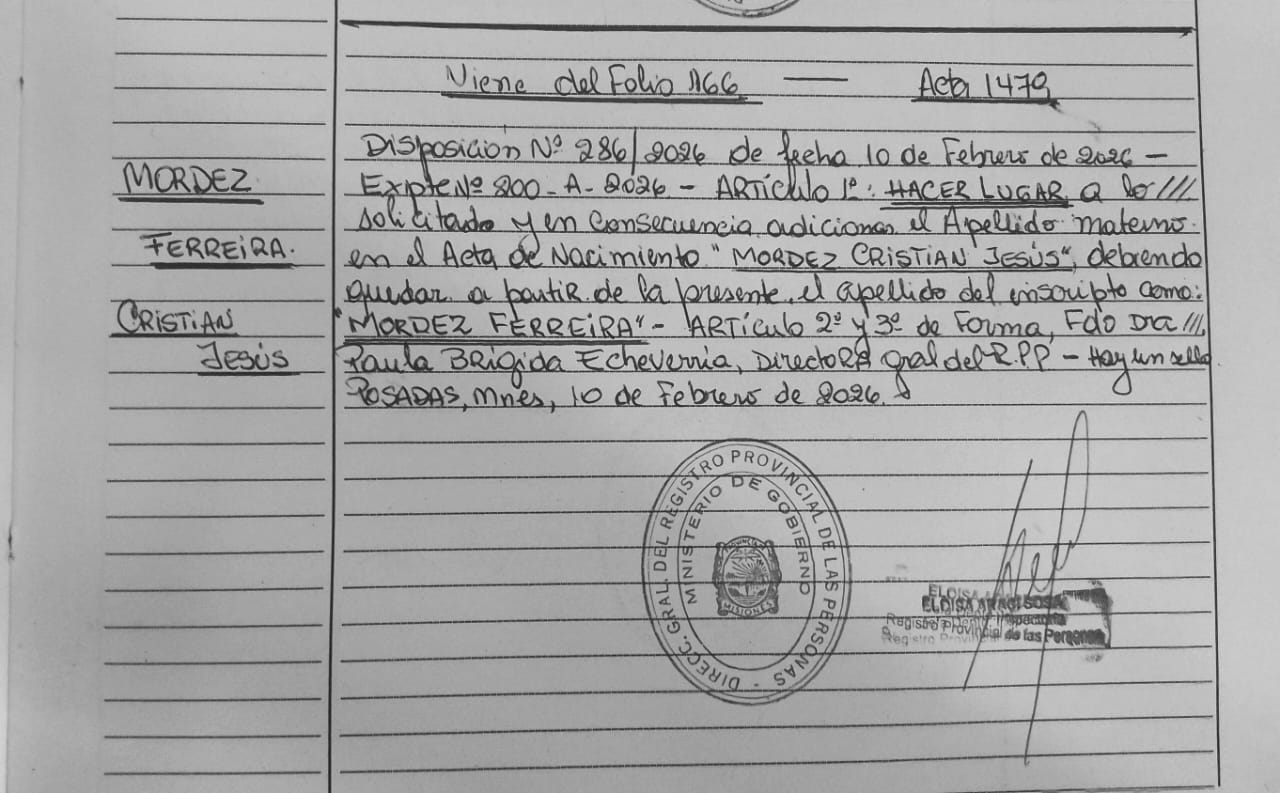 Viene del Folio 166 — Acta 1479
MORDEZ
FERREIRA.
CRISTIAN
JESÚS
Disposición Nº 286/2026 de fecha 10 de Febrero de 2026 —
Expte Nº 200-A-2026 - ARTÍCULO 1º: HACER LUGAR a lo ///
solicitado y en Consecuencia adicionar el Apellido materno
en el Acta de Nacimiento "MORDEZ CRISTIAN JESÚS", debiendo
quedar a partir de la presente, el apellido del inscripto como:
"MORDEZ FERREIRA" - ARTÍCULO 2º y 3º de Forma, Fdo Dra ///
Paula BRígida Echeverria, DirectoRA Gral del R.P.P - Hay un sello
POSADAS, Mnes, 10 de Febrero de 2026.
DIRECC. GRAL. DEL REGISTRO PROVINCIAL DE LAS PERSONAS -
MINISTERIO DE GOBIERNO
PROVINCIA
MISIONES
ELOISA
ELOISA ARACI SOSA
Registro Provincial de las Personas